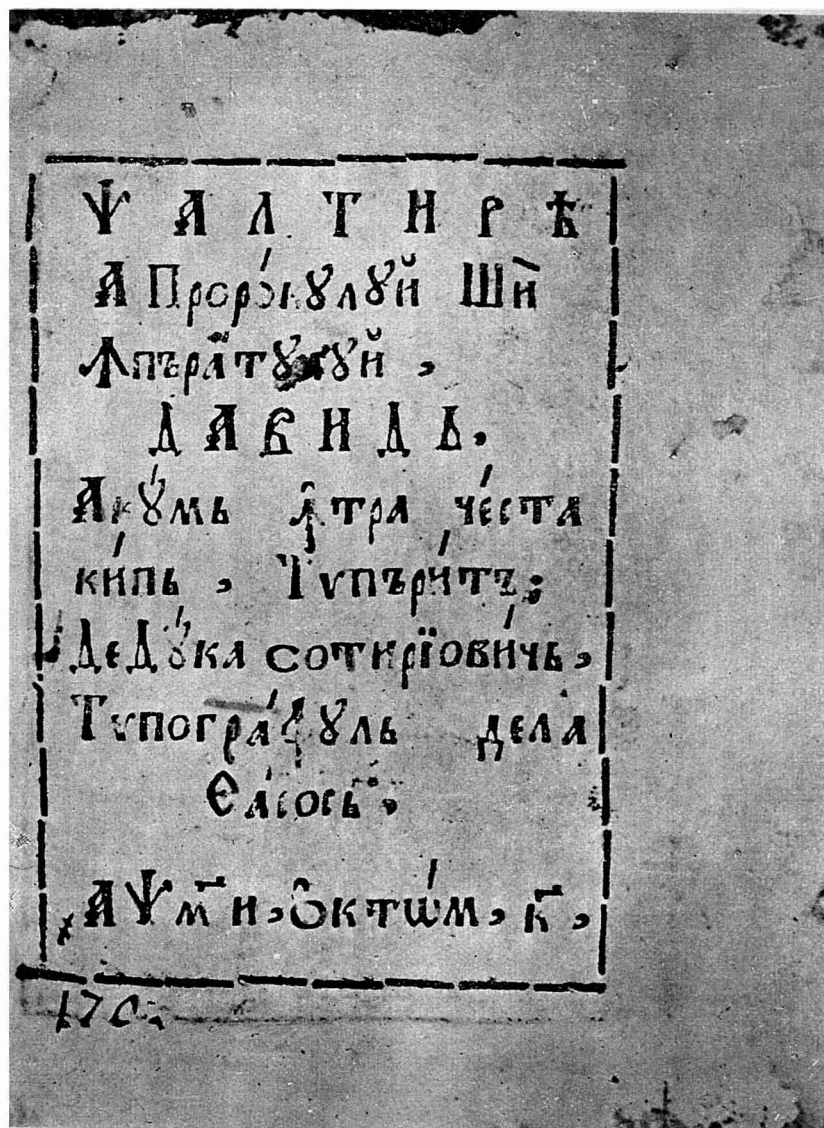 Ѱ А Л Т И Р Ѣ
А Проро́кꙋлꙋй Шѝ
Ꙟпъра́тꙋлꙋй ,
Д А В И Д Ь ,
Акꙋ́мь ꙟ҆тра че́ста
ки́пь , Тѵпъри́тъ ;
ДеДꙋ́ка сотирїови́чь ,
Тѵпогра́фꙋль дела
Еа́сось ,
҂АѰм҃и , О҆ктѡ́м , к҃ ,